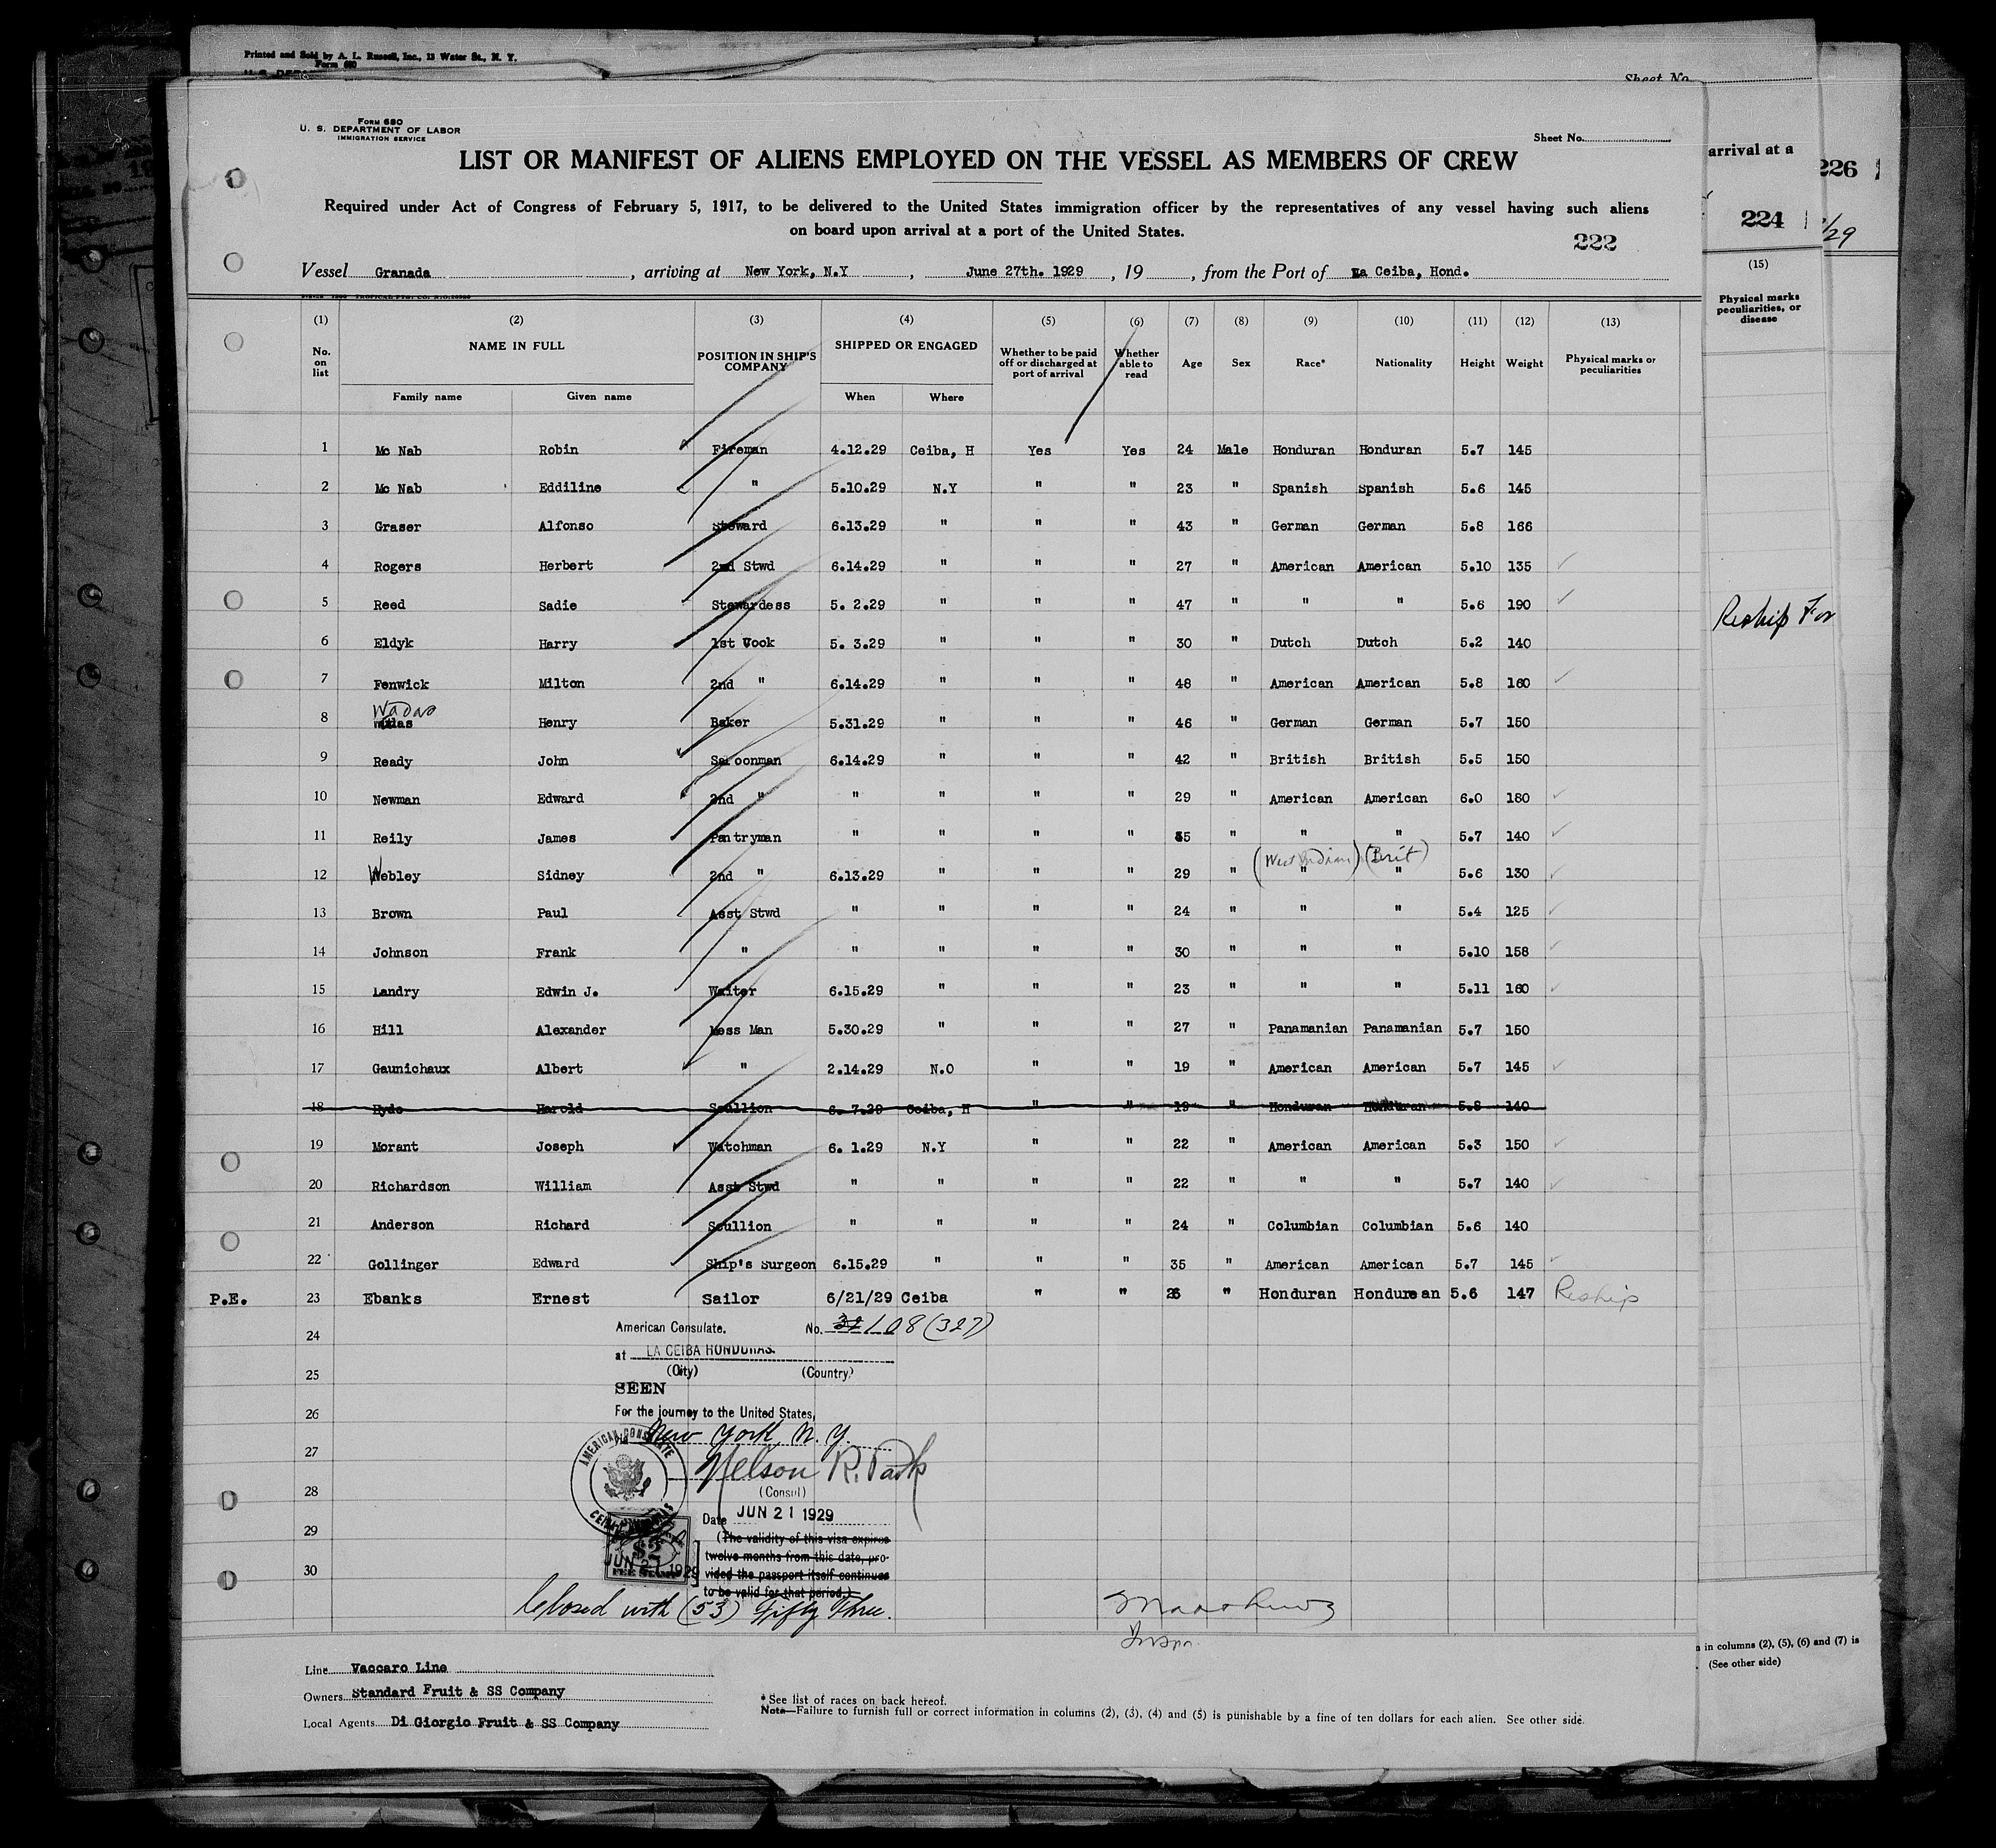 Printed and Sold by A. L. Russell, Inc., 13 Water St., N. Y.
Form 680
Sheet No.
Form 680
U. S. DEPARTMENT OF LABOR
IMMIGRATION SERVICE
Sheet No.
LIST OR MANIFEST OF ALIENS EMPLOYED ON THE VESSEL AS MEMBERS OF CREW
Required under Act of Congress of February 5, 1917, to be delivered to the United States immigration officer by the representatives of any vessel having such aliens
on board upon arrival at a port of the United States.
222
Vessel Granada , arriving at New York, N.Y , June 27th. 1929 , 19 , from the Port of La Ceiba, Hond.
(1) (2) (3) (4) (5) (6) (7) (8) (9) (10) (11) (12) (13)
No. on list NAME IN FULL POSITION IN SHIP'S COMPANY SHIPPED OR ENGAGED Whether to be paid off or discharged at port of arrival Whether able to read Age Sex Race* Nationality Height Weight Physical marks or peculiarities
Family name Given name When Where
1 Mc Nab Robin Fireman 4.12.29 Ceiba, H Yes Yes 24 Male Honduran Honduran 5.7 145
2 Mc Nab Eddiline " 5.10.29 N.Y " " 23 " Spanish Spanish 5.6 145
3 Graser Alfonso Steward 6.13.29 " " " 43 " German German 5.8 166
4 Rogers Herbert 2nd Stwd 6.14.29 " " " 27 " American American 5.10 135
5 Reed Sadie Stewardess 5. 2.29 " " " 47 " " " 5.6 190
6 Eldyk Harry 1st Cook 5. 3.29 " " " 30 " Dutch Dutch 5.2 140
7 Fenwick Milton 2nd " 6.14.29 " " " 48 " American American 5.8 160
Wadas
8 Henry Baker 5.31.29 " " " 46 " German German 5.7 150
9 Ready John Saloonman 6.14.29 " " " 42 " British British 5.5 150
10 Newman Edward 2nd " " " " " 29 " American American 6.0 180
11 Reily James Pantryman " " " " 35 " " " 5.7 140
(West Indian) (Brit)
12 Webley Sidney 2nd " 6.13.29 " " " 29 " " " 5.6 130
13 Brown Paul Asst Stwd " " " " 24 " " " 5.4 125
14 Johnson Frank " " " " " 30 " " " 5.10 158
15 Landry Edwin J. Waiter 6.15.29 " " " 23 " " " 5.11 160
16 Hill Alexander Mess Man 5.30.29 " " " 27 " Panamanian Panamanian 5.7 150
17 Gaunichaux Albert " 2.14.29 N.O " " 19 " American American 5.7 145
18 Hyde Harold Scullion 6. 7.29 Ceiba, H " " 19 " Honduran Honduran 5.8 140
19 Morant Joseph Watchman 6. 1.29 N.Y " " 22 " American American 5.3 150
20 Richardson William Asst Stwd " " " " 22 " " " 5.7 140
21 Anderson Richard Scullion " " " " 24 " Columbian Columbian 5.6 140
22 Gollinger Edward Ship's Surgeon 6.15.29 " " " 35 " American American 5.7 145
P.E. 23 Ebanks Ernest Sailor 6/21/29 Ceiba " " 26 " Honduran Honduran 5.6 147 Reship
24
25
26
27
28
29
30
American Consulate. No. 32 108 (327)
at LA CEIBA HONDURAS.
(City) (Country)
SEEN
For the journey to the United States,
New York N. Y.
AMERICAN CONSULATE
Nelson R. Park
(Consul)
Date JUN 21 1929
(The validity of this visa expires
twelve months from this date, pro-
vided the passport itself continues
to be valid for that period.)
$2
JUN 21 1929
FEE STAMP
Closed with (53) Fifty Three.
Inspr.
Line Vaccaro Line
Owners Standard Fruit & SS Company
Local Agents Di Giorgio Fruit & SS Company
*See list of races on back hereof.
Note—Failure to furnish full or correct information in columns (2), (3), (4) and (5) is punishable by a fine of ten dollars for each alien. See other side.
arrival at a
226
224
/29
(15)
Physical marks
peculiarities, or
disease
Reship For
in columns (2), (5), (6) and (7) is
(See other side)